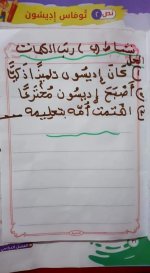 نص ٢ توماس إديسون
نشاط (٤) رتب الكلمات
١) كان إديسون تلميذًا ذكيًّا
٢) أصبح إديسون مخترعًا
٣) اهتمت أمه بتعليمه